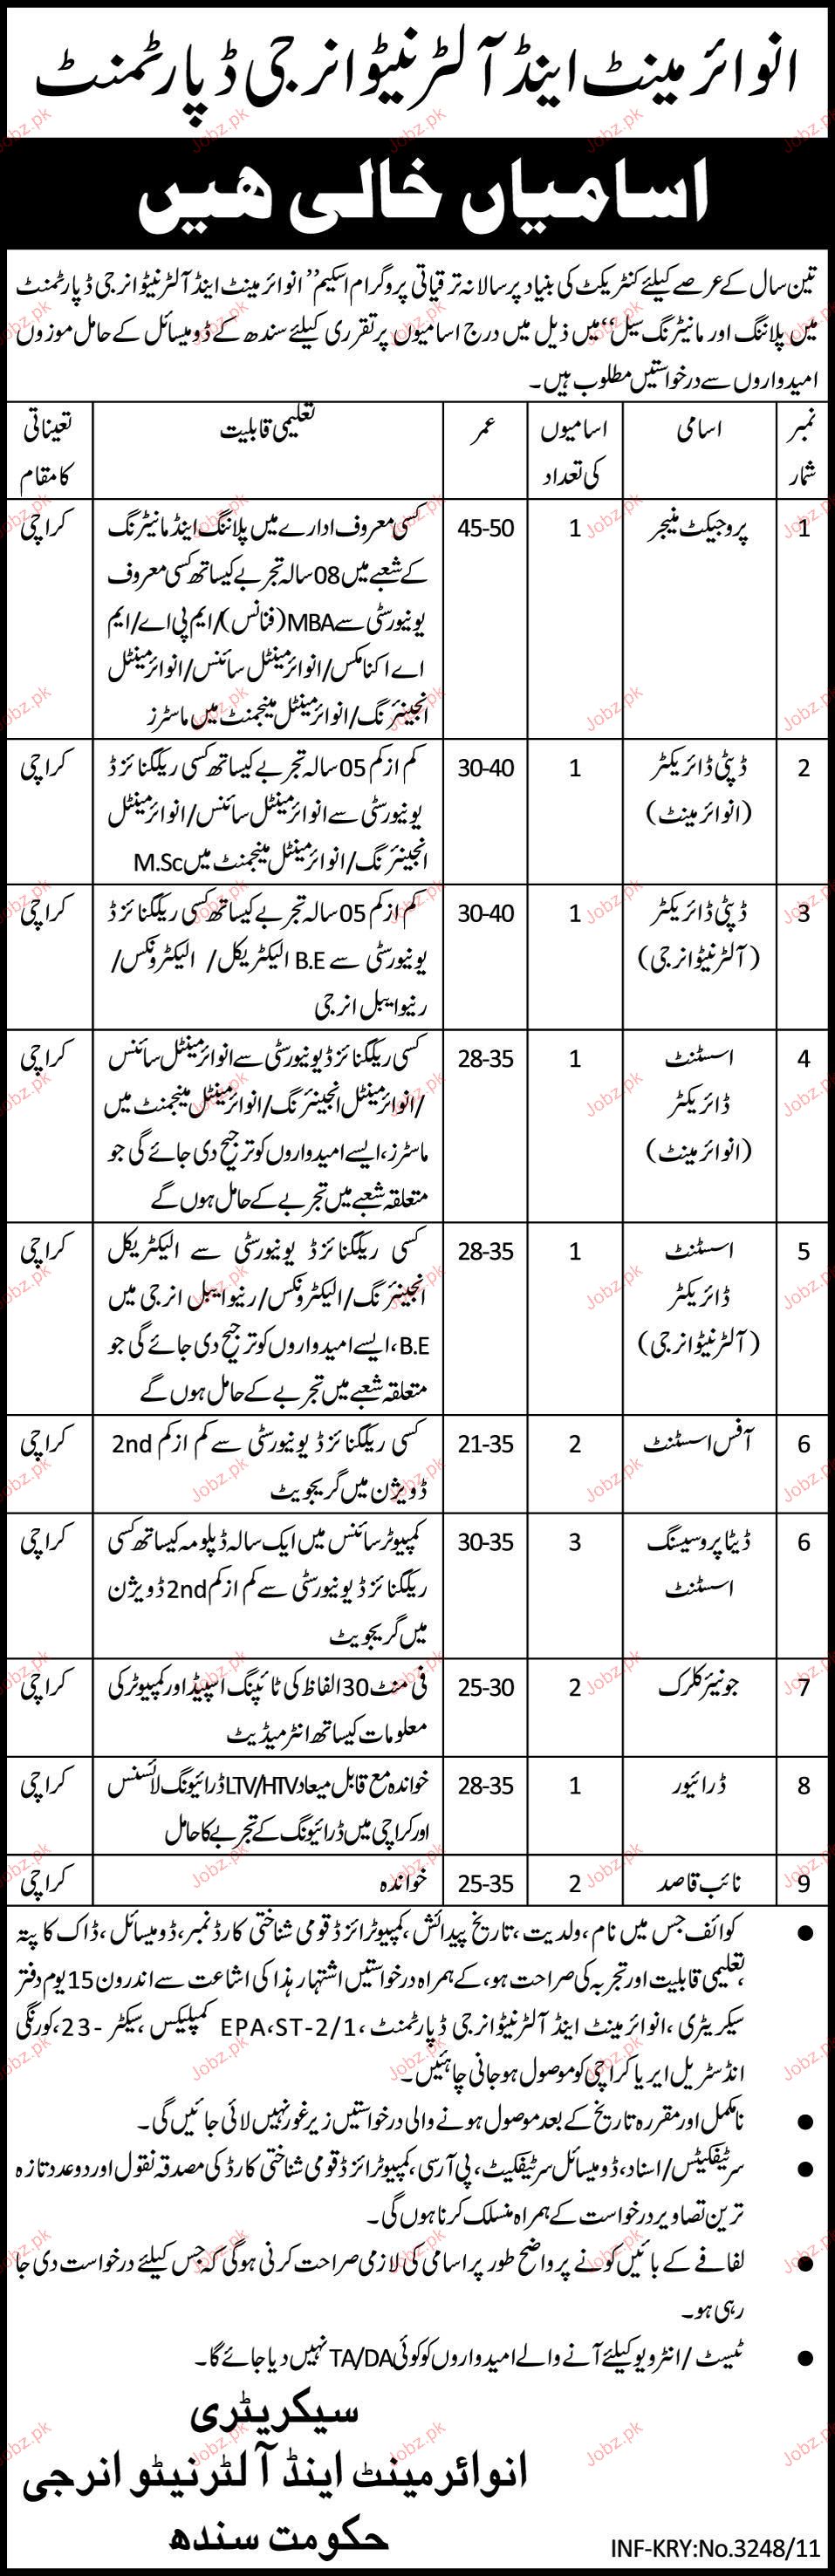 انوائرمینٹ اینڈ آلٹرنیٹو انرجی ڈپارٹمنٹ
اسامیاں خالی ھیں
تین سال کے عرصے کیلئے کنٹریکٹ کی بنیاد پر سالانہ ترقیاتی پروگرام اسکیم ’’انوائرمینٹ اینڈ آلٹرنیٹو انرجی ڈپارٹمنٹ
میں پلاننگ اور مانیٹرنگ سیل‘‘ میں ذیل میں درج اسامیوں پر تقرری کیلئے سندھ کے ڈومیسائل کے حامل موزوں
امیدواروں سے درخواستیں مطلوب ہیں۔
نمبر شمار | اسامی | اسامیوں کی تعداد | عمر | تعلیمی قابلیت | تعیناتی کا مقام
1 | پروجیکٹ منیجر | 1 | 45-50 | کسی معروف ادارے میں پلاننگ اینڈ مانیٹرنگ | کراچی
کے شعبے میں 08 سالہ تجربے کیساتھ کسی معروف
یونیورسٹی سے MBA (فنانس)/ ایم پی اے/ ایم
اے اکنامکس/ انوائرمینٹل سائنس/ انوائرمینٹل
انجینئرنگ/ انوائرمینٹل مینجمنٹ میں ماسٹرز
2 | ڈپٹی ڈائریکٹر | 1 | 30-40 | کم از کم 05 سالہ تجربے کیساتھ کسی ریکگنائزڈ | کراچی
(انوائرمینٹ) | یونیورسٹی سے انوائرمینٹل سائنس/ انوائرمینٹل
انجینئرنگ/ انوائرمینٹل مینجمنٹ میں M.Sc
3 | ڈپٹی ڈائریکٹر | 1 | 30-40 | کم از کم 05 سالہ تجربے کیساتھ کسی ریکگنائزڈ | کراچی
(آلٹرنیٹو انرجی) | یونیورسٹی سے B.E الیکٹریکل/ الیکٹرونکس/
رینیوایبل انرجی
4 | اسسٹنٹ | 1 | 28-35 | کسی ریکگنائزڈ یونیورسٹی سے انوائرمینٹل سائنس | کراچی
ڈائریکٹر | /انوائرمینٹل انجینئرنگ/ انوائرمینٹل مینجمنٹ میں
(انوائرمینٹ) | ماسٹرز، ایسے امیدواروں کو ترجیح دی جائے گی جو
متعلقہ شعبے میں تجربے کے حامل ہوں گے
5 | اسسٹنٹ | 1 | 28-35 | کسی ریکگنائزڈ یونیورسٹی سے الیکٹریکل | کراچی
ڈائریکٹر | انجینئرنگ/ الیکٹرونکس/ رینیوایبل انرجی میں
(آلٹرنیٹو انرجی) | B.E، ایسے امیدواروں کو ترجیح دی جائے گی جو
متعلقہ شعبے میں تجربے کے حامل ہوں گے
6 | آفس اسسٹنٹ | 2 | 21-35 | کسی ریکگنائزڈ یونیورسٹی سے کم از کم 2nd | کراچی
ڈویژن میں گریجویٹ
6 | ڈیٹا پروسیسنگ | 3 | 30-35 | کمپیوٹر سائنس میں ایک سالہ ڈپلومہ کیساتھ کسی | کراچی
اسسٹنٹ | ریکگنائزڈ یونیورسٹی سے کم از کم 2nd ڈویژن
میں گریجویٹ
7 | جونیئر کلرک | 2 | 25-30 | فی منٹ 30 الفاظ کی ٹائپنگ اسپیڈ اور کمپیوٹر کی | کراچی
معلومات کیساتھ انٹرمیڈیٹ
8 | ڈرائیور | 1 | 28-35 | خواندہ مع قابل میعاد LTV/HTV ڈرائیونگ لائسنس | کراچی
اور کراچی میں ڈرائیونگ کے تجربے کا حامل
9 | نائب قاصد | 2 | 25-35 | خواندہ | کراچی
● کوائف جس میں نام، ولدیت، تاریخ پیدائش، کمپیوٹرائزڈ قومی شناختی کارڈ نمبر، ڈومیسائل، ڈاک کا پتہ
،تعلیمی قابلیت اور تجربہ کی صراحت ہو، کے ہمراہ درخواستیں اشتہار ہذا کی اشاعت سے اندرون 15 یوم دفتر
سیکریٹری، انوائرمینٹ اینڈ آلٹرنیٹو انرجی ڈپارٹمنٹ، EPA، ST-2/1 کمپلیکس، سیکٹر -23، کورنگی
انڈسٹریل ایریا کراچی کو موصول ہو جانی چاہئیں۔
● نامکمل اور مقررہ تاریخ کے بعد موصول ہونے والی درخواستیں زیر غور نہیں لائی جائیں گی۔
● سرٹیفکیٹس/ اسناد، ڈومیسائل سرٹیفکیٹ، پی آر سی، کمپیوٹرائزڈ قومی شناختی کارڈ کی مصدقہ نقول اور دو عدد تازہ
ترین تصاویر درخواست کے ہمراہ منسلک کرنا ہوں گی۔
● لفافے کے بائیں کونے پر واضح طور پر اسامی کی لازمی صراحت کرنی ہوگی کہ جس کیلئے درخواست دی جا
رہی ہو۔
● ٹیسٹ/ انٹرویو کیلئے آنے والے امیدواروں کو کوئی TA/DA نہیں دیا جائے گا۔
سیکریٹری
انوائرمینٹ اینڈ آلٹرنیٹو انرجی
حکومت سندھ
INF-KRY:No.3248/11
Jobz.pk